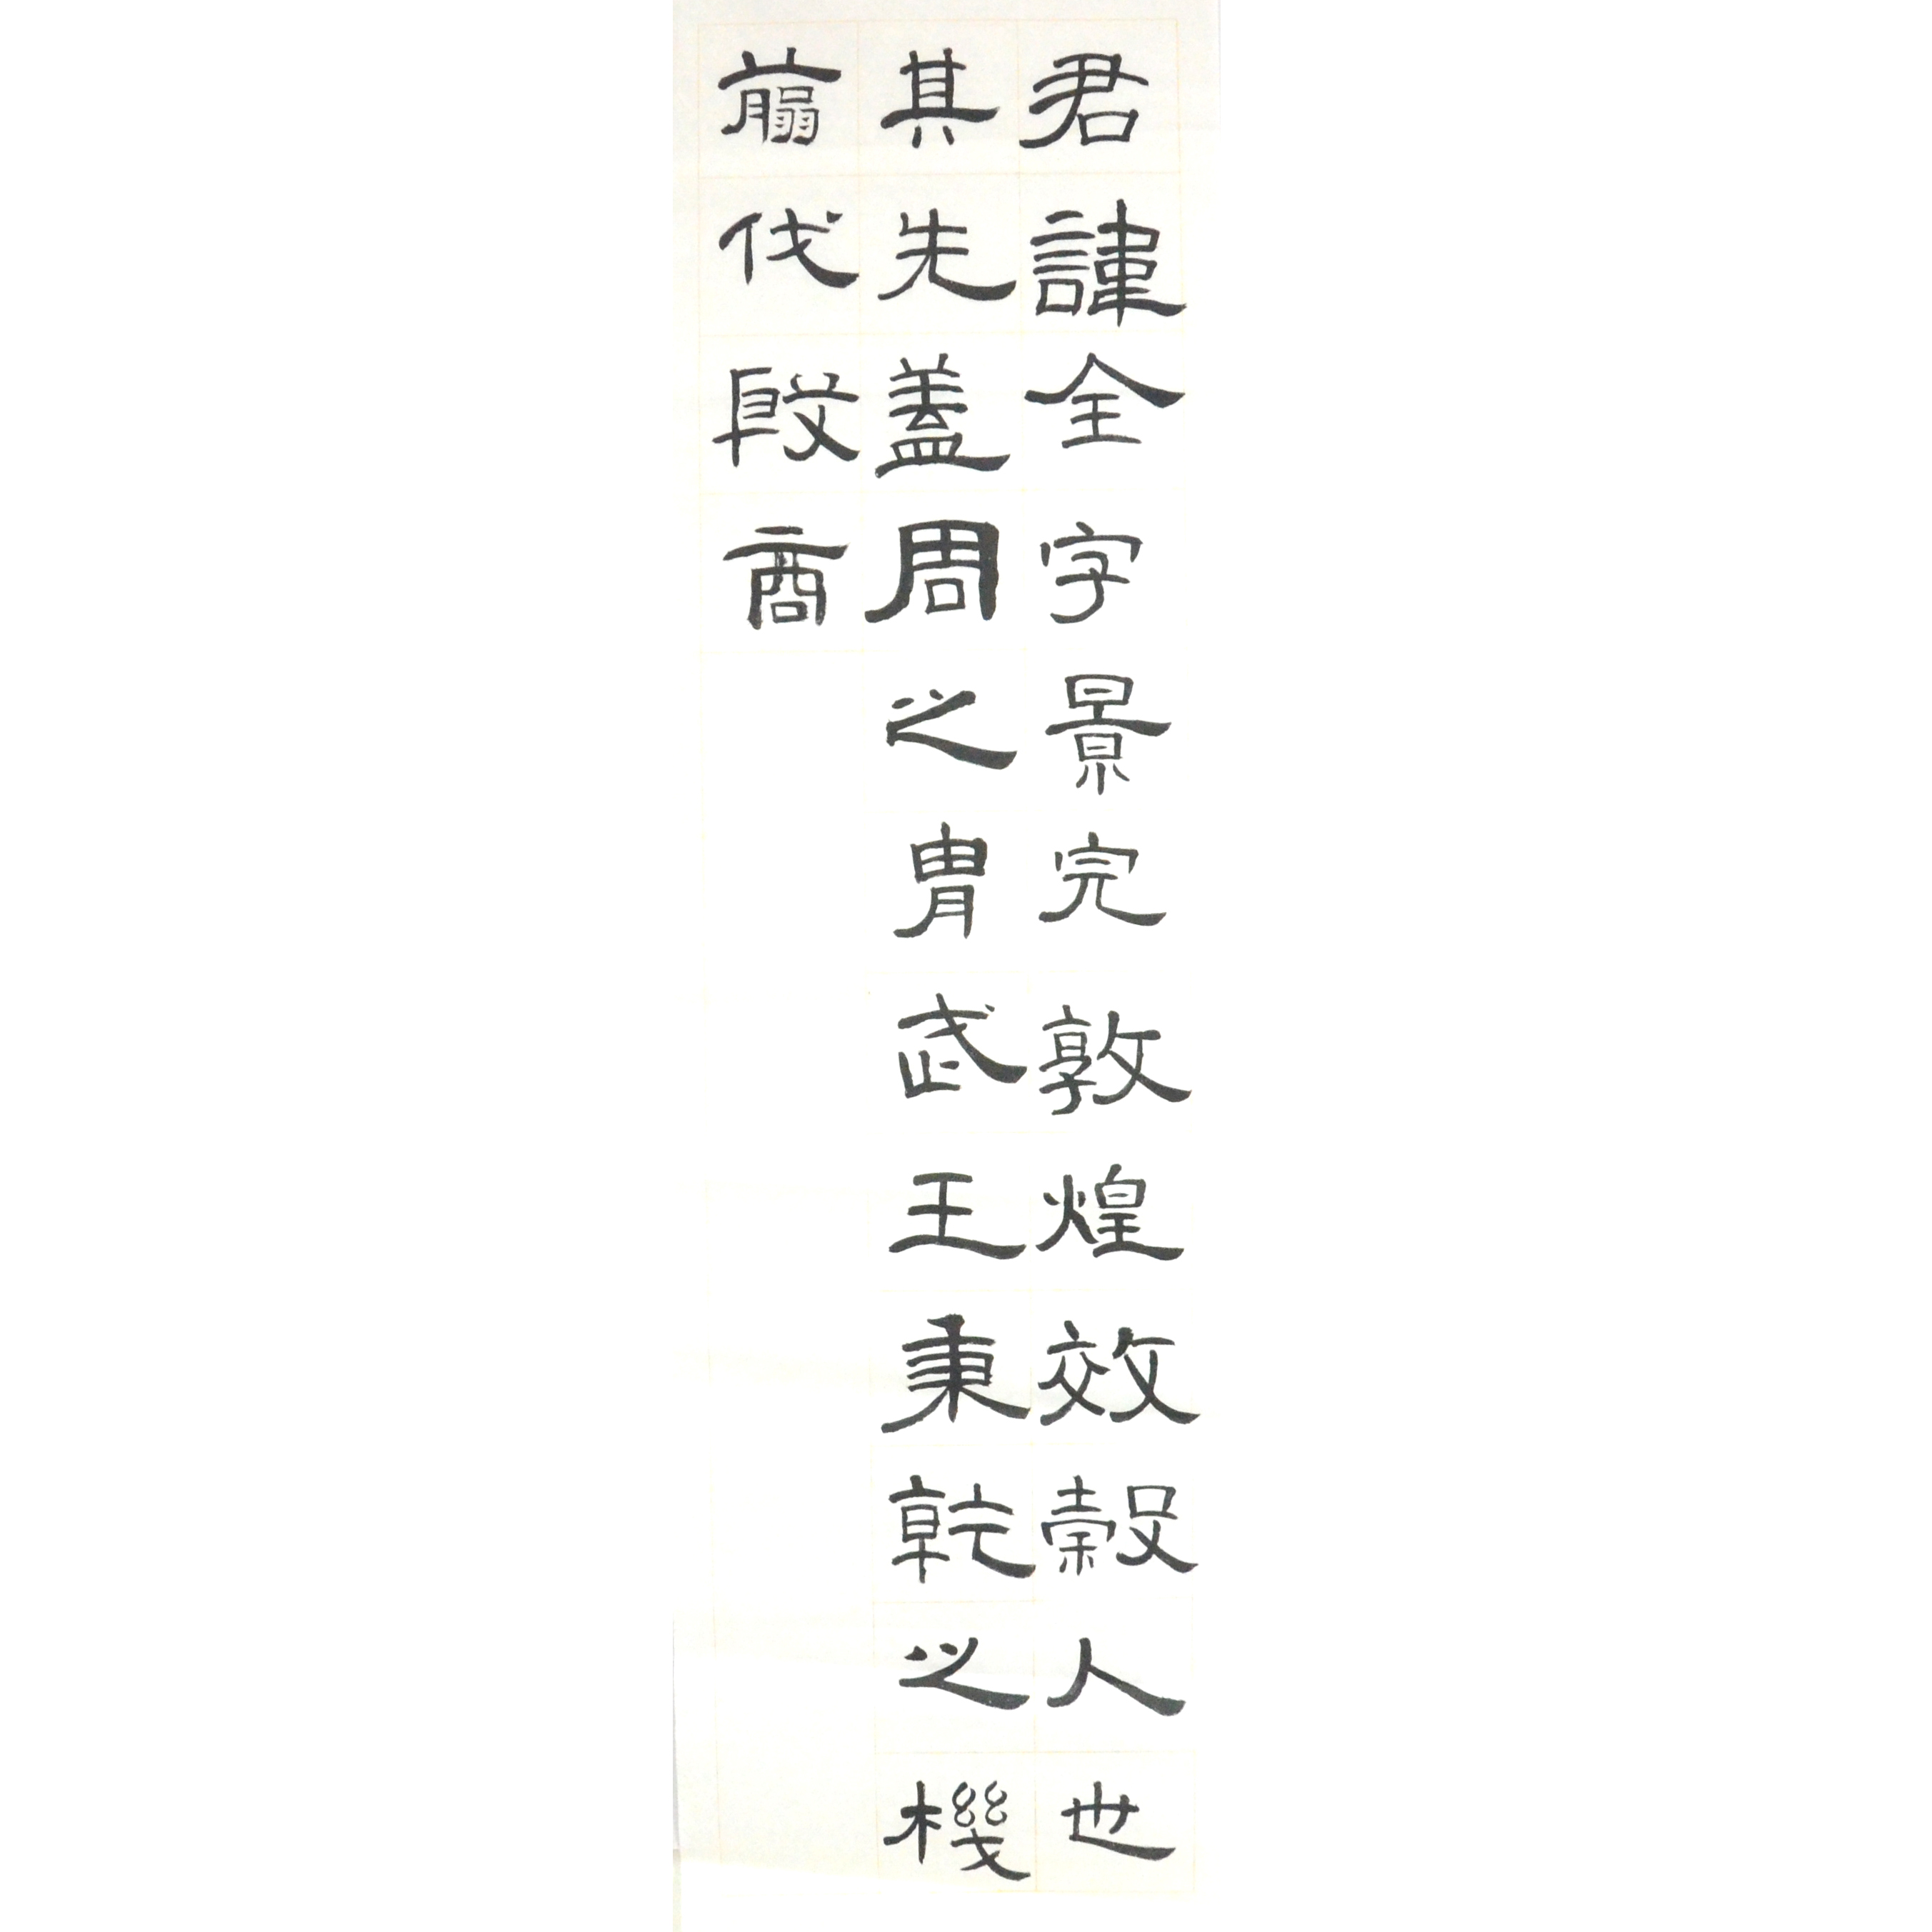 君諱全字景完敦煌效穀人也
其先蓋周之胄武王秉乾之機
翦伐殷商